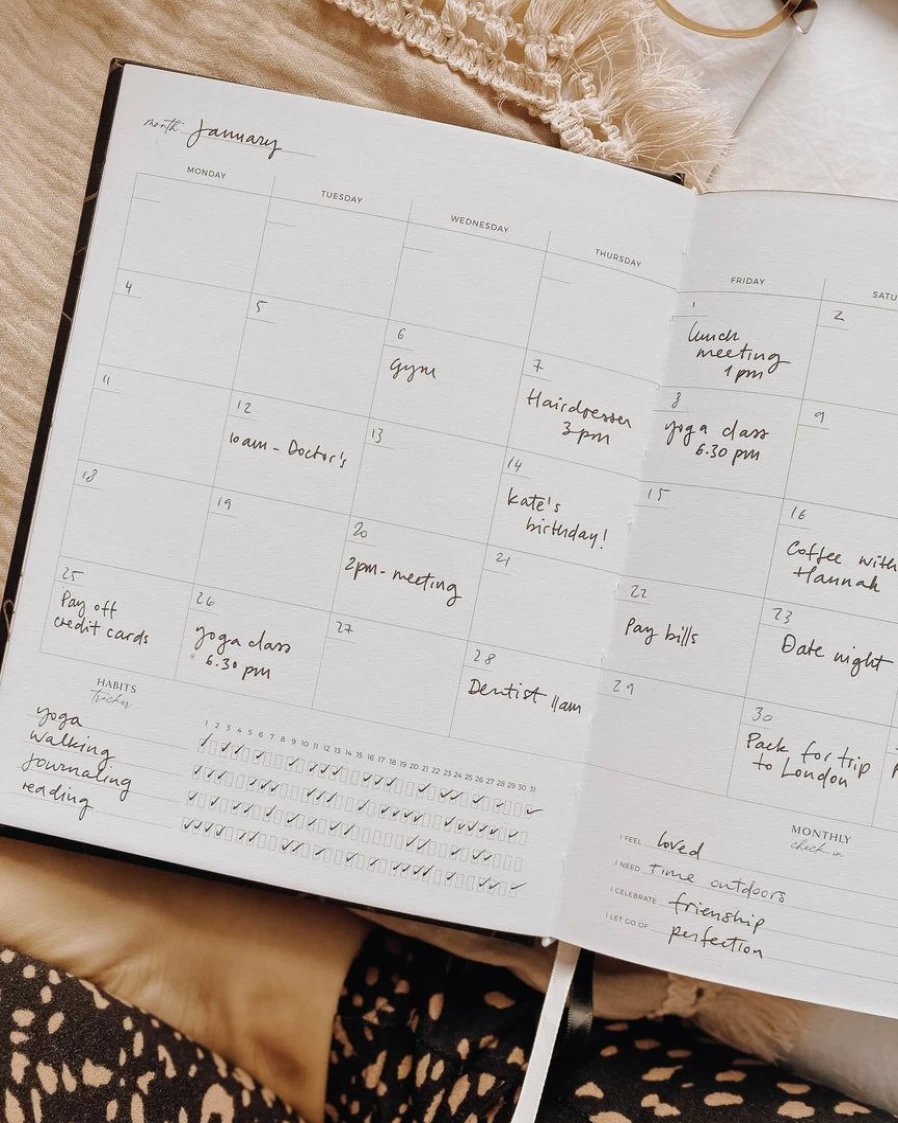 month: January
MONDAY
TUESDAY
WEDNESDAY
THURSDAY
FRIDAY
SATU
1
lunch
meeting
1pm
2
4
5
6
gym
7
Hairdresser
3pm
8
yoga class
6.30 pm
9
11
12
10am - Doctor's
13
14
Kate's
birthday!
15
16
Coffee with
Hannah
18
19
20
2pm - meeting
21
22
Pay bills
23
Date night
25
Pay off
credit cards
26
yoga class
6.30 pm
27
28
Dentist 11am
29
30
Pack for trip
to London
HABITS
tracker
1 2 3 4 5 6 7 8 9 10 11 12 13 14 15 16 17 18 19 20 21 22 23 24 25 26 27 28 29 30 31
yoga
walking
journaling
reading
MONTHLY
check-in
I FEEL loved
I NEED Time outdoors
I CELEBRATE frienship
I LET GO OF perfection